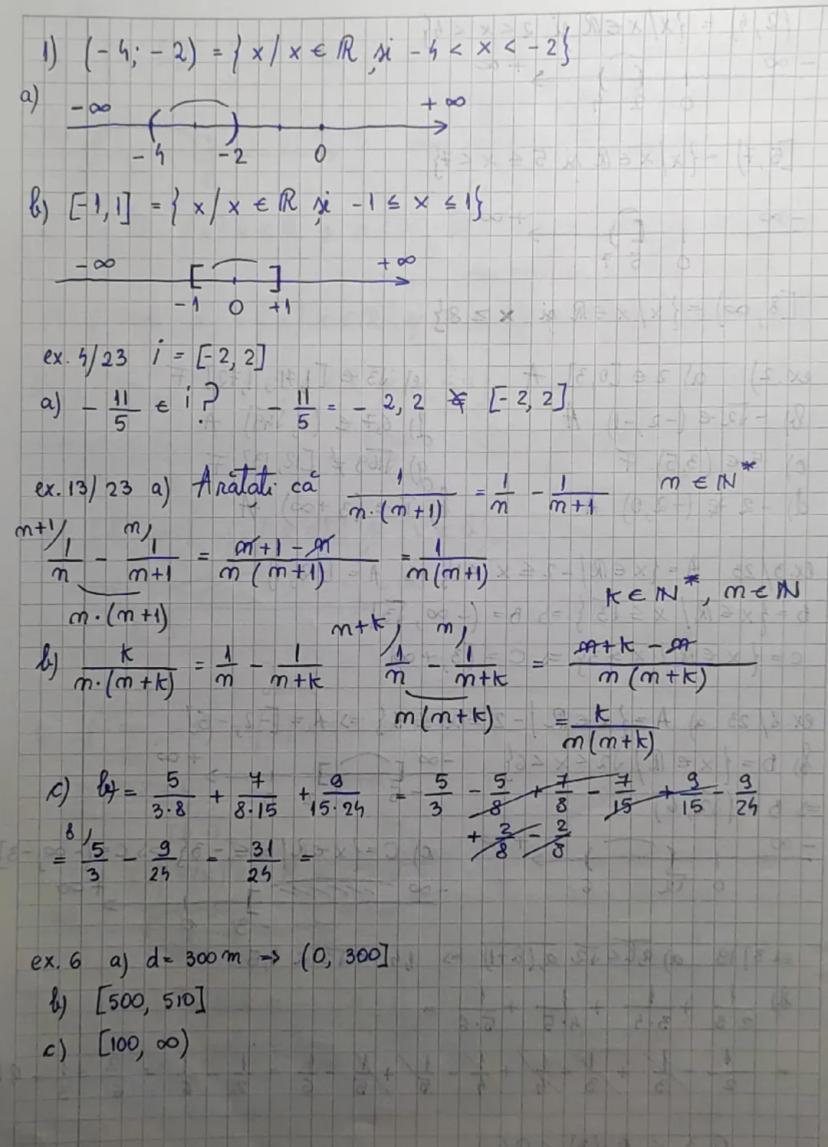 1) (-4; -2) = { x / x ∈ ℝ și -4 < x < -2}
a)
-∞ +∞
-4 -2 0
b) [-1,1] = { x / x ∈ ℝ și -1 ≤ x ≤ 1}
-∞ +∞
-1 0 +1
ex. 4/23 i = [-2, 2]
a) - 11/5 ∈ i ? - 11/5 = - 2,2 ∉ [-2, 2]
ex. 13/23 a) Arătați că 1/(n·(n+1)) = 1/n - 1/(n+1) n ∈ ℕ*
n+1) 1/n - n) 1/(n+1) = (n+1-n)/(n(n+1)) = 1/(n(n+1))
n·(n+1)
k ∈ ℕ*, n ∈ ℕ
b) k/(n·(n+k)) = 1/n - 1/(n+k) n+k) 1/n - n) 1/(n+k) = (n+k-n)/(n(n+k))
n(n+k) = k/(n(n+k))
c) = 5/(3·8) + 7/(8·15) + 9/(15·24) = 5/3 - 5/8 + 7/8 - 7/15 + 9/15 - 9/24
+ 2/8 - 2/8
= 8) 5/3 - 9/24 = 31/24 =
ex. 6 a) d = 300 m => (0, 300]
b) [500, 510]
c) [100, ∞)